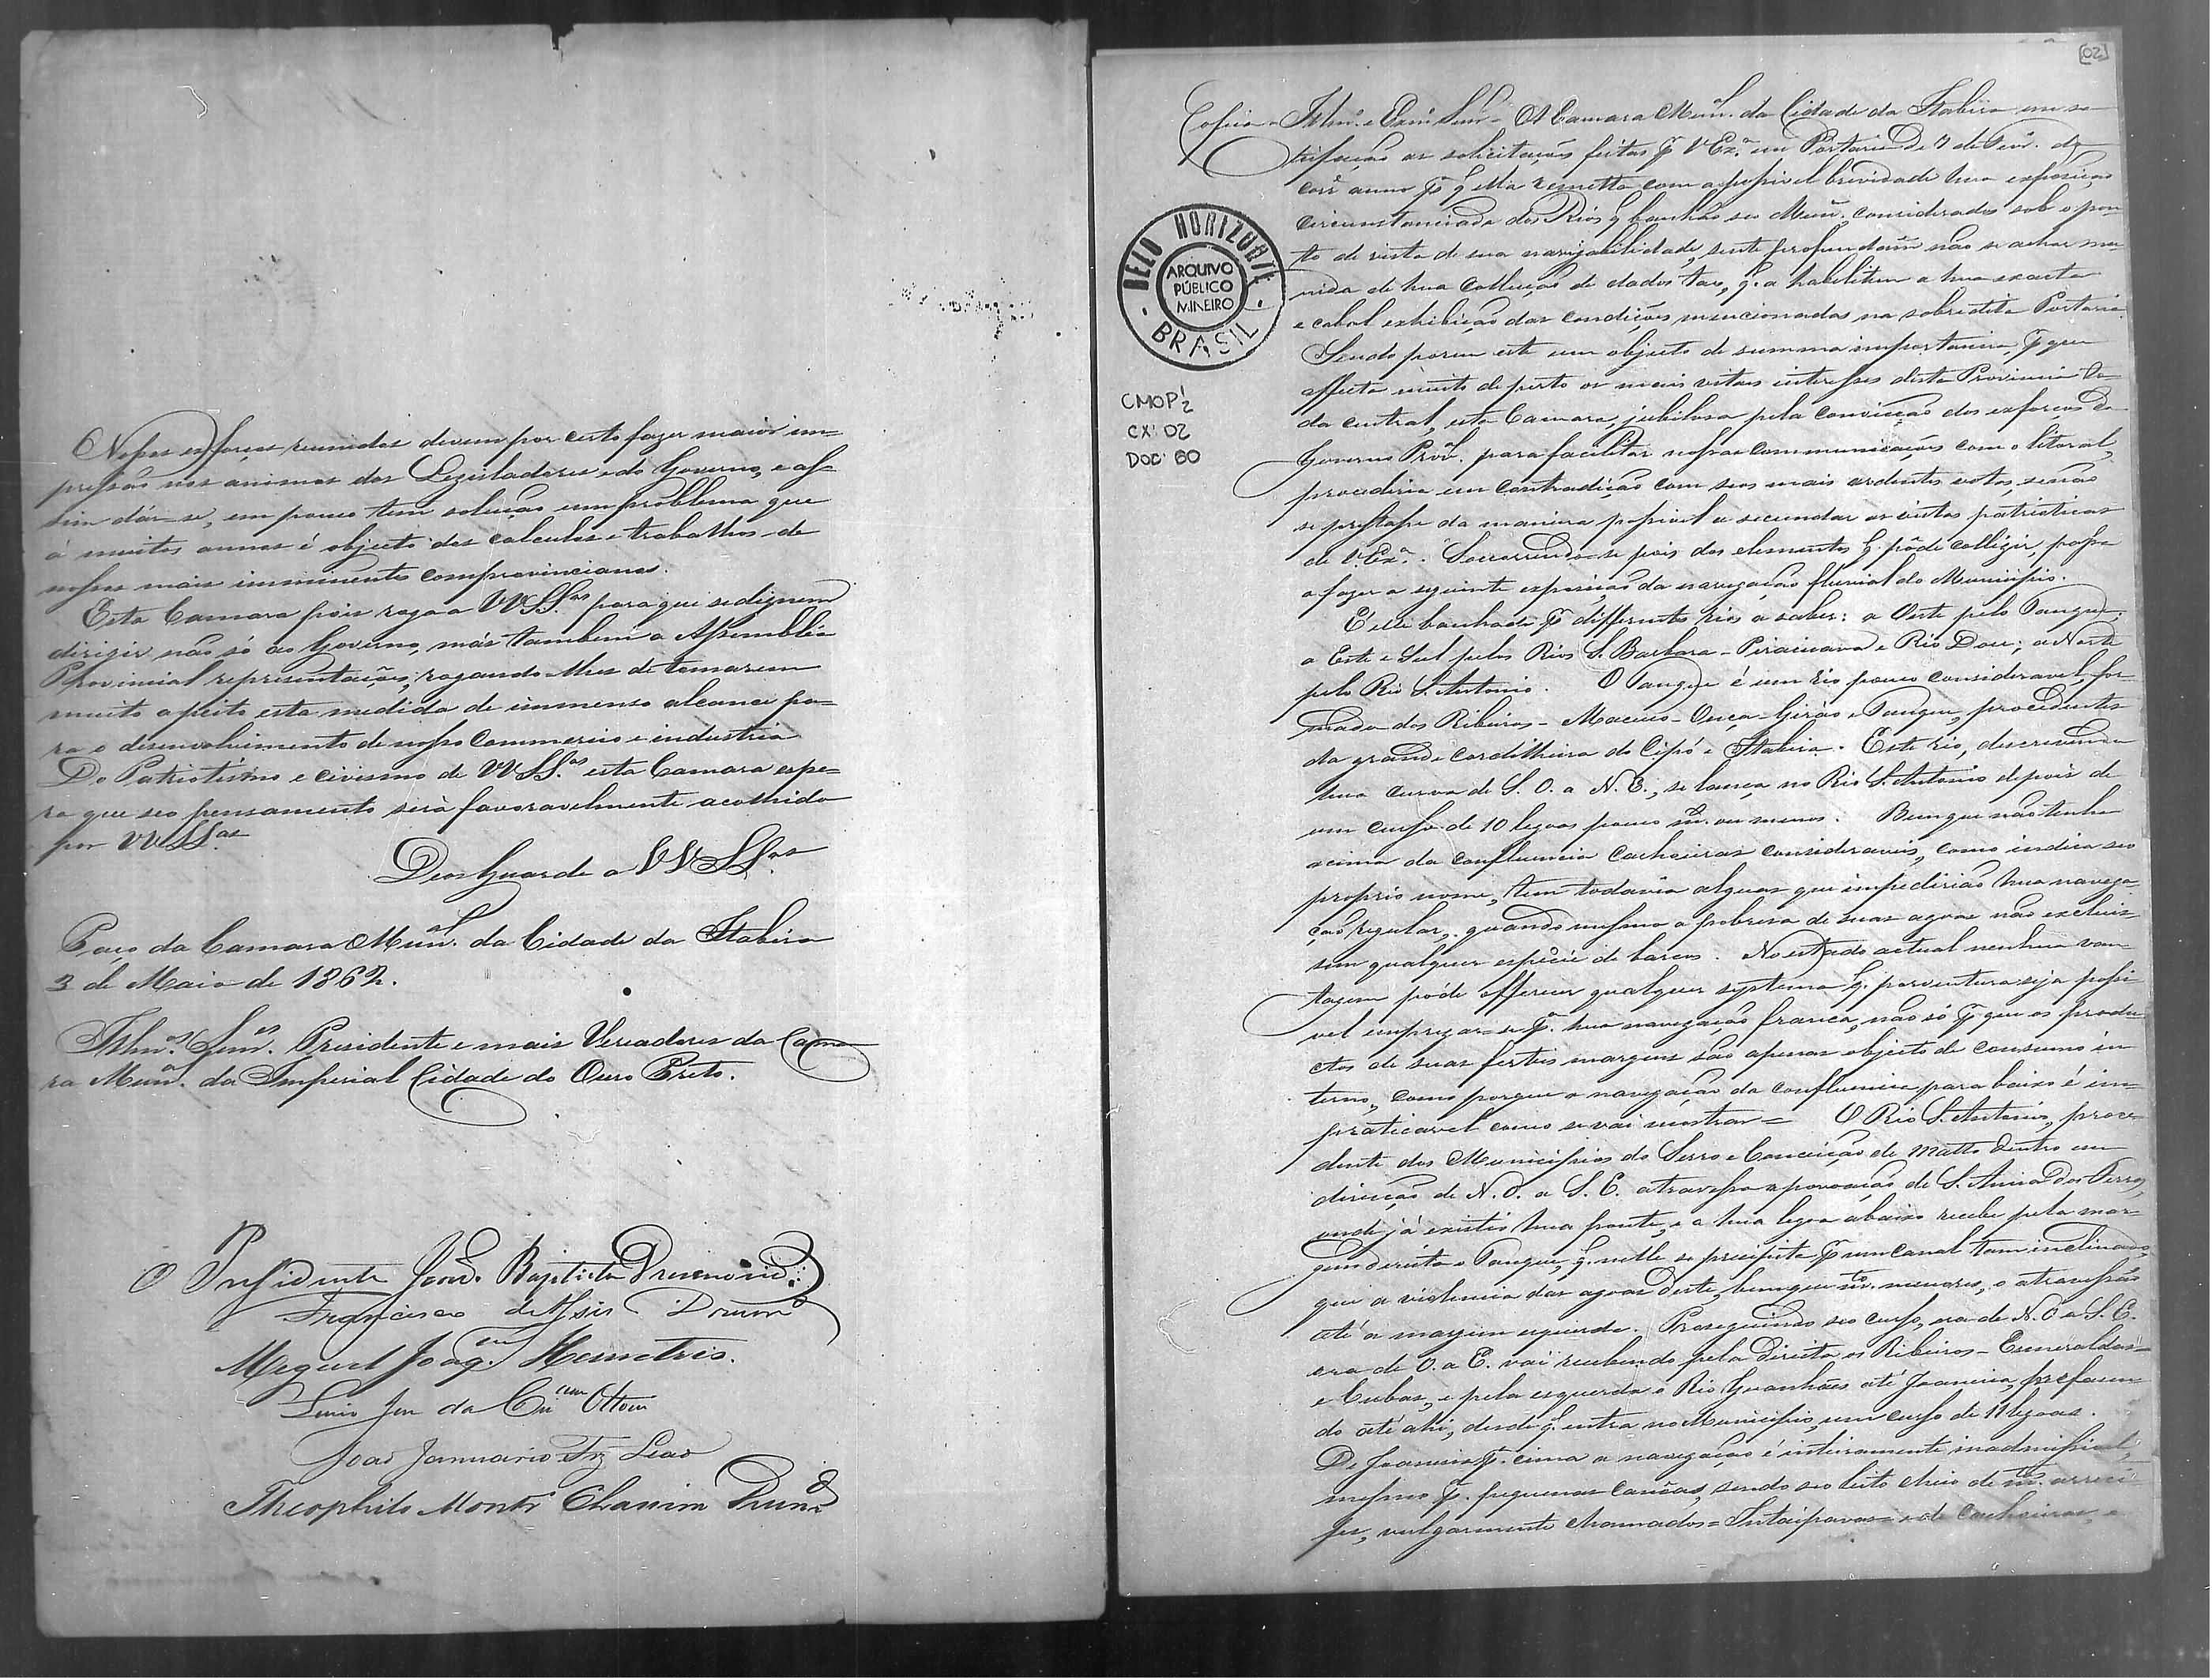 Nossos esforços reunidos devem por certo fazer maior im=
pressão nos animos dos Legisladores e do Governo, e as=
sim dár-se, em pouco tem solução um problema que
á muitos annos é objecto dos calculos e trabalhos de
nossos mais imminentes comprovincianos.
Esta Camara pois roga a VVSS.as para que se dignem
dirigir não só ao Governo, más tambem a Assembléa
Provincial representações, rogando-lhes de tomarem
muito a peito esta medida de immenso alcance pa=
ra o desenvolvimento de nosso Commercio e industria
Do Patriotismo e civismo de VVSS.as esta Camara espe=
ra que seo pensamento será favoravelmente acolhido
por VVSS.as
Deos Guarde a VVSS.as
Paço da Camara Mun.al da Cidade da Itabira
3 de Maio de 1862.
Illm.os Snr.es Presidente e mais Vereadores da Cama
ra Mun.al da Imperial Cidade do Ouro Preto.
O Presidente Joad. Baptista Drumond
Francisco de Assis Drumd
Miguel Joaq.m
da Ottoni
Joao Januario Frz Leao
Theophilo Drumd
[02]
Copia - Illm.o e Exm.o Snr - A Camara Mun.al da Cidade da Itabira em sa
tisfação as solicitações feitas p V Ex.a em Portaria de 7 de do
corr anno pa q ella remetta com a possivel brevidade hua exposição
circunstanciada dos Rios q banhão seo Mun. considerados sob o pon
to de vista de sua navigabilidade, sente profundam não se achar mu
nida de hua collecção de dados taes, q. a habilitem a hua exacta
e cabal exhibição das condições mencionadas na sobredita Portaria.
Sendo porem este um objecto de summa importancia, p que
affecta muito de perto os mais vitaes interesses desta Provincia to
da central, esta Camara, jubilosa pela convicção dos esforços do
Governo Prov. para facilitar nossas communicações com o litoral,
procederia em contradicção com seos mais ardentes votos, senão
se prestasse da maneira possivel a secundar as vistas patrioticas
de V. Ex.a. Soccorrendo-se pois dos elementos q. pôde colligir, passa
a fazer a seguinte exposição da navegação fluvial do Municipio.
É elle banhado p differentes rios a saber: a Oeste pelo Tanque;
a Este e Sul pelos Rios S. Barbara - Piracicava e Rio Doce; a Norte
pelo Rio S. Antonio. O Tanque é um rio pouco consideravel for
mado dos Ribeiros - Macuco - Onça - Girão e Tanque, procedentes
da grande cordilheira do Cipó e Itabira. Este rio, descrevendo
hua curva de S. O. a N. E., se lança no Rio S. Antonio depois de
um curso de 10 legoas pouco m. ou menos. Bem que não tenha
acima da confluencia cachoeiras consideraveis, como indica seo
proprio nome, tem todavia alguas que impedirião hua navega
ção regular, quando mesmo a pobresa de suas agoas não excluis
sem qualquer especie de barcos. No estado actual nenhua van
tagem póde offerecer qualquer systema q. porventura seja possi
vel empregar-se p. hua navegação franca, não só p que os produ
ctos de suas ferteis margens são apenas objecto de consumo in
terno, como porque a navegação da confluencia para baixo é im
praticavel como se vai mostrar = O Rio S. Antonio, proce
dente dos Municipios do Serro e Conceição de Matto dentro em
direcção de N. O. a S. E. atravessa a povoação de S. Anna dos Ferros,
onde já existio hua ponte, e a hua legoa abaixo recebe pela mar
gem direita o Tanque, q. nelle se precipita p um canal tam inclinado,
que a violencia das agoas deste, bem que m. menores, o atravessão
até a margem esquerda. Proseguindo seo curso, ora de N. O a S. E.
ora de O. a E. vai recebendo pela direita os Ribeiros - Esmeraldas =
e Cubas, e pela esquerda o Rio Guanhães até Joanesia, prefasen
do até ahi, desde q. entra no Municipio, um curso de 11 legoas.
De Joanesia p. cima a navegação é inteiramente inadmissivel,
mesmo p. pequenas canôas, sendo seo leito cheio de m. arreci
fes, vulgarmente chamados = Intaipavas = e de Cachoeiras, e
BELO HORIZONTE
ARQUIVO
PÚBLICO
MINEIRO
BRASIL
CMOP 1/2
CX: 02
DOC: 60